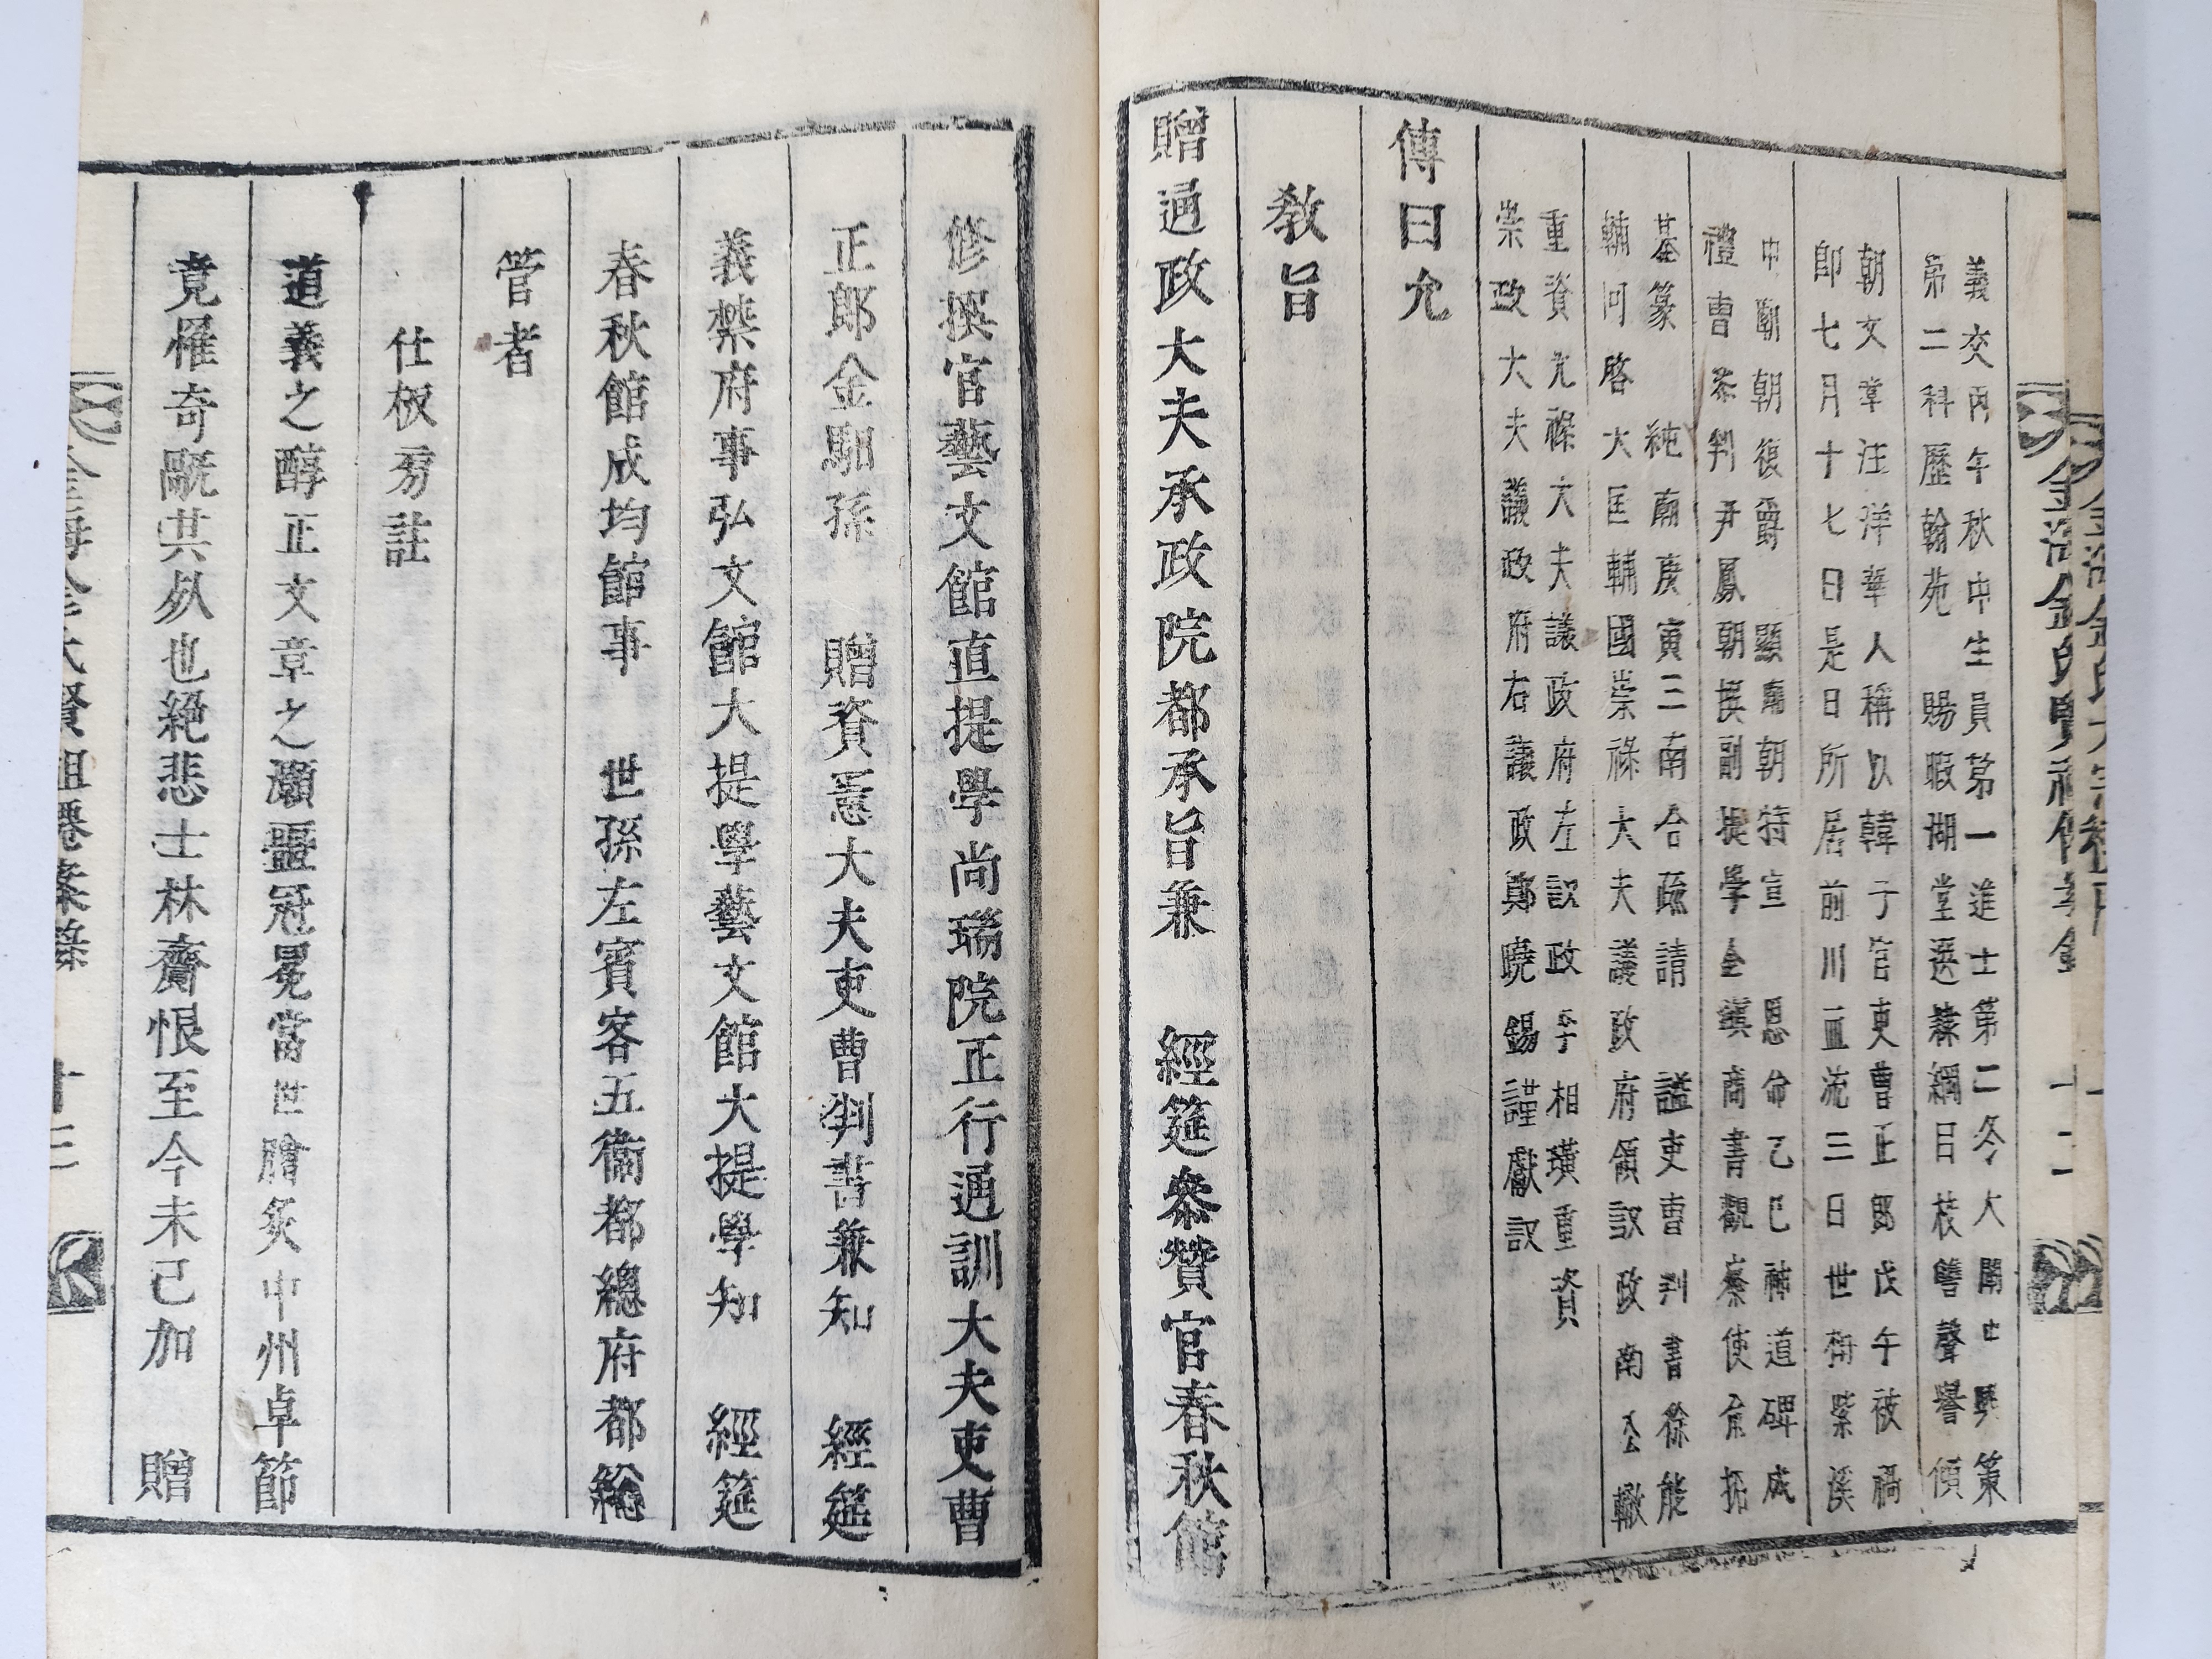 義交丙午秋中生員第一進士第二冬大闡中興策
第二科歷翰苑 賜暇湖堂選隷綱目校讐聲譽傾
朝文章汪洋華人稱以韓子官吏曹正郎戊午被禍
卽七月十七日是日所居前川血流三日世稱紫溪
中廟朝復爵 顯廟朝特宣 恩命乙巳神道碑成
禮曹參判尹鳳朝撰副提學金鎭商書觀察使兪拓
基篆 純廟庚寅三南合疏請 諡吏曹判書徐能
輔 啓大匡輔國崇祿大夫議政府領議政南公轍
重資 大夫議政府左議政李相璜重資
崇政大夫議政府右議政鄭晚錫謹獻議
傳曰允
教旨
贈通政大夫承政院都承旨兼 經筵參贊官春秋館
修撰官藝文館直提學尚瑞院正行通訓大夫吏曹
正郎金馹孫 贈資憲大夫吏曹判書兼知 經筵
義禁府事弘文館大提學藝文館大提學知 經筵
春秋館成均館事 世孫左賓客五衛都總府都總
管者
仕板易註
道義之醇正文章之灝噩冠冕當世膾炙中州卓節
竟罹奇 共 也絕悲士林齎恨至今未已加 贈